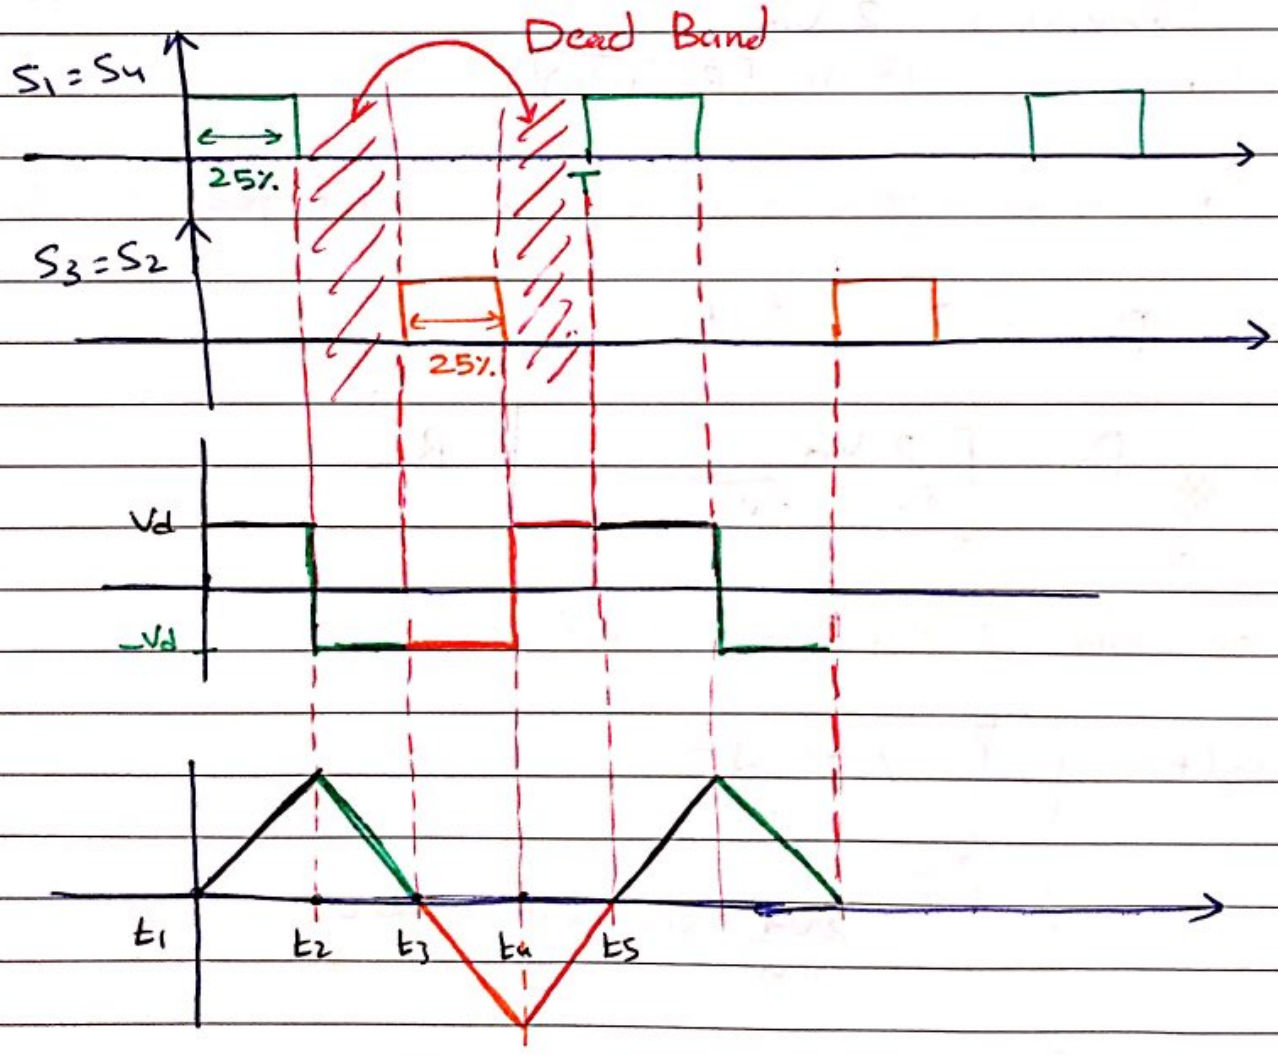 Dead Band
S1 = S4
25%
T
S3 = S2
25%
Vd
-Vd
t1 t2 t3 t4 t5